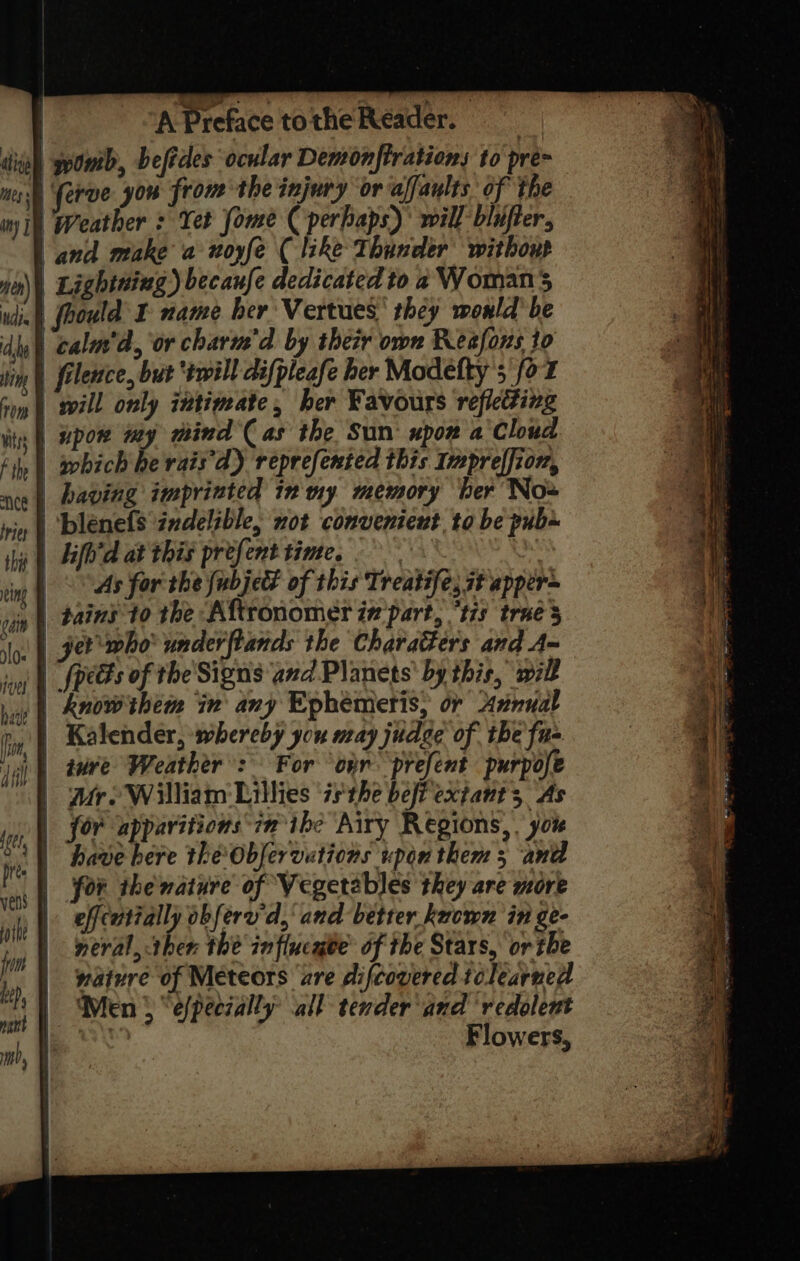 A Preface to the Reader.
womb, beſides ocular Demonſtrations to pre-
ſerve you from the injury or aſſaults of the
Weather : Yet ſome ( perhaps) will bluſter,
and make a noyſe ( like Thunder without
Lightning ) becauſe dedicated to a Woman;
ſhould I name her Vertues they would be
calm'd, or charm'd by their own Reaſons to
ſilence, but 'twill diſpleaſe her Modeſty; ſo I
will only intimate, her Favours reflecting
upon my mind (as the Sun upon a Cloud
which he rais'd) repreſented this Impreſſion,
having imprinted in my memory her No-
bleneſs indelible, not convenient to be pub-
liſh'd at this preſent time.
As for the ſubject of this Treatiſe, it apper-
tains to the Aſtronomer in part, 'tis true;
yet who underſtands the Characters and A-
ſpects of the Signs and Planets by this, will
know them in any Ephemeris, or Annual
Kalender, whereby you may judge of the fu-
ture Weather : For our preſent purpoſe
Mr. William Lillies is the beſt extant; As
for apparitions in the Airy Regions, you
have here the Obſervations upon them; and
for the nature of Vegetables they are more
eſſentially obſerv'd, and better known in ge-
neral, then the influence of the Stars, or the
nature of Meteors are diſcovered to learned
Men, eſpecially all tender and redolent
Flowers,